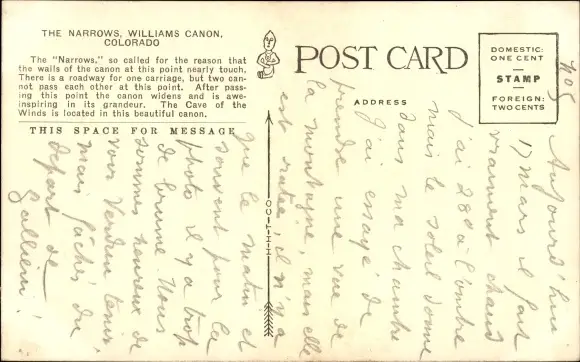 THE NARROWS, WILLIAMS CANON,
COLORADO
The "Narrows," so called for the reason that
the walls of the canon at this point nearly touch.
There is a roadway for one carriage, but two can-
not pass each other at this point. After pass-
ing this point the canon widens and is awe-
inspiring in its grandeur. The Cave of the
Winds is located in this beautiful canon.
THIS SPACE FOR MESSAGE
POST CARD
ADDRESS
DOMESTIC:
ONE CENT
STAMP
FOREIGN:
TWO CENTS
H-H-T-CO
504
Aujourd'hui
17 mars il fait
vraiment chaud
j'ai 28° à l'ombre
mais le soleil donne
dans ma chambre
J'ai essayé de
prendre une vue de
la montagne, mais elle
est ratée, il n'y a
que le matin et
souvent pour la
photo il y a trop
de brume. Nous
sommes heureux de
voir Verdun tenir,
mais fâchés du
départ de
Gallieni!